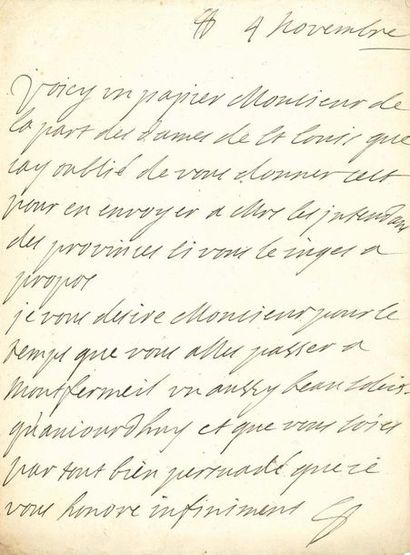 4 novembre
voicy un papier Monsieur de
la part des dames de St Louis que
jay oublié de vous donner cest
pour en envoyer a Mrs les jntendans
des provinces si vous le juges a
propos
je vous desire Monsieur pour le
temps que vous alles passer a
montfermeil un aussy beau soleil
qu'aujourdhuy et que vous soies
par tout bien persuadé que je
vous honore infiniment